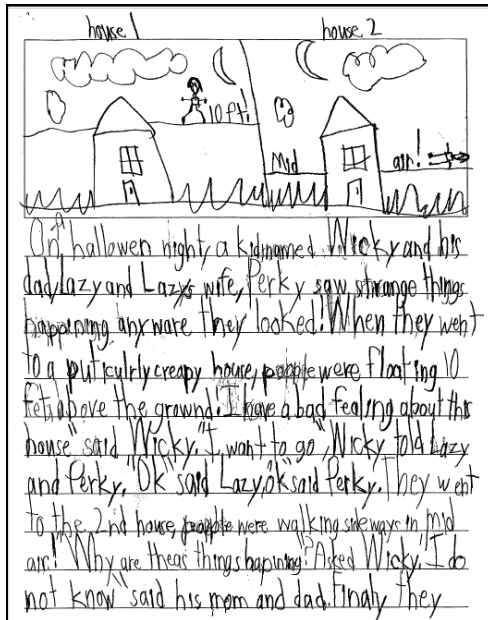 house 1 house 2
10ft!
Mid air!
On a hallowen night, a kid named Wicky and his
dad Lazy and Lazys wife, Perky saw strange things
happining anyware they looked! When they went
to a puticulrly creapy house, people were floating 10
fet above the grownd. I have a bad fealing about this
house" said Wicky. "I want to go", Wicky told Lazy
and Perky. "Ok" said Lazy, "ok" said Perky. They went
to the 2nd house, people were walking sideways in mid
air! "Why are theas things hapining"? Asked Wicky. "I do
not know" said his mom and dad. finaly they